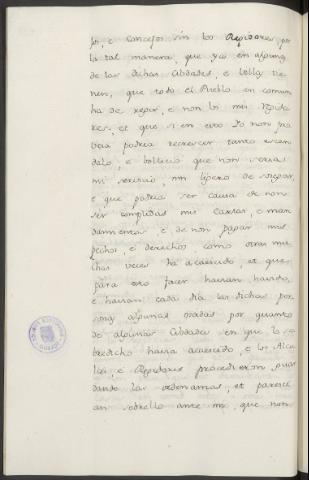 jos, e concejos sin los Regidores, por
la tal manera, que ya en alguna
de las dichas cibdades, e villas tie-
nen, que todo el Pueblo en comun
ha de regir, e non los mis Regido-
res, et que si en esto Yo non pro-
veia podria recrescer tanto escan-
dalo, e bollicio que non seria
mi servicio, nin ligero de sosegar,
e que podria ser causa de non
ser complidas mis cartas, e man-
damientos, e de non pagar mis
pechos, e derechos como otras mu-
chas veces ha acaescido, et que
para esto facer havian havido,
e havian cada dia los dichos per-
sonas algunas osadas por quanto
de algunas cibdades en que lo so-
bredicho havia acaescido, e los Alca-
lles, e Regidores procedieron, guar-
dando las ordenanzas, et parescie-
an sobrello ante mi, que non